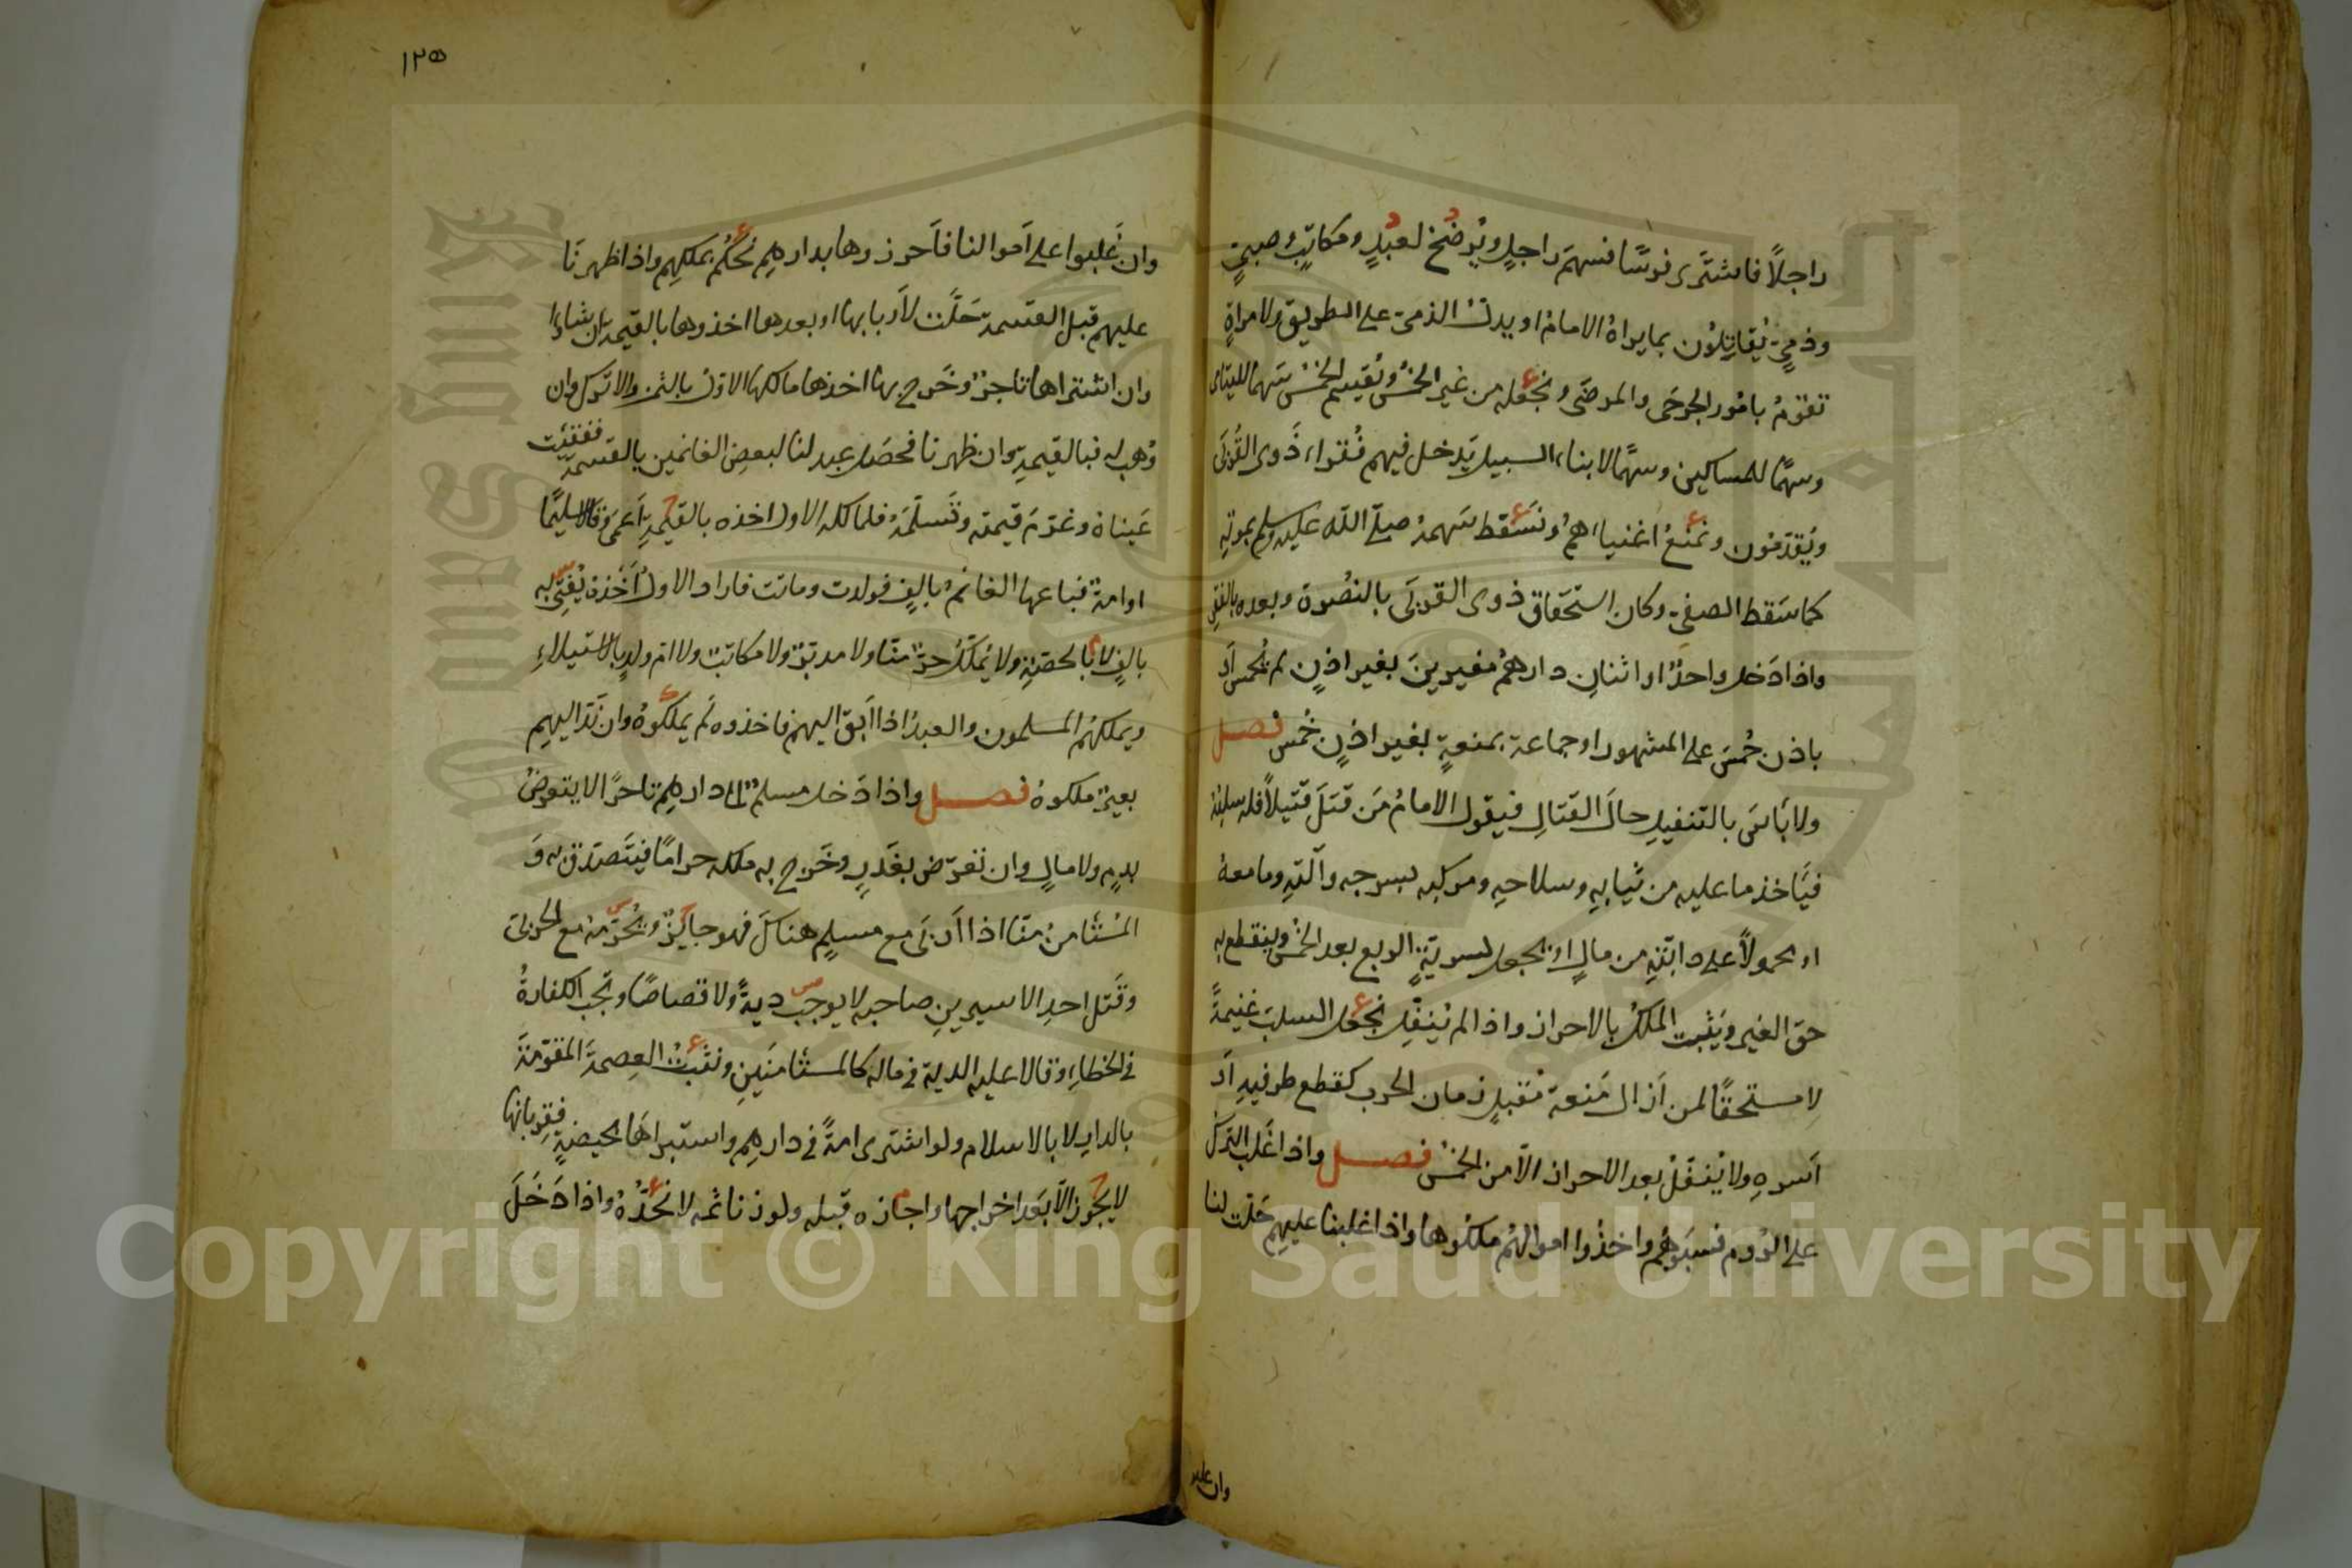 راجلًا فاشترى فرسًا فسهم راجلٍ ويُرضخ لعبدٍ ومكاتبٍ وصبيٍ
وذميٍ يُقاتِلون بما يراهُ الامامُ او يدلُّ الذميّ على الطريق ولامراةٍ
تقومُ بامُور الجرحى والمرضى ونجعله من غير الخمس ونُقسِم الخمسَ سهمًا لليتامى
وسهمًا للمساكين وسهمًا لابناء السبيل يَدخل فيهم فُقراء ذَوى القُربَى
ويُقدّمون ونمنعُ اغنياءهم ونُسقط سَهمهُ صلّى الله عليه وسلم بموتِهِ
كما سَقط الصفيّ وكان استحقاق ذوى القربَى بالنُصرة وبعده بالفقر
واذا دَخل واحدٌ او اثنانِ دارهُم مغيرينَ بغير اذنٍ لم يُخمس اَو
باذن خُمسَ على المشهور او جماعة بمنعةٍ بغير اذنٍ خُمسَ فصل
ولا بَاسَ بالتنفيلِ حالَ القتالِ فيقول الامامُ مَن قَتَلَ قتيلًا فله سلبهُ
فيَاخذ ما عليه من ثيابهِ وسلاحهِ ومركبه بسرجه وآلتهِ وما معهُ
او محمولًا على دابّتهِ من مالٍ او يجعل لسريّةٍ الربع بعد الخمس وينقطع به
حق الغير ويَثبت الملكُ بالاحراز واذا لم يُنفِل نجعل السلبَ غنيمةً
لا مستحقًا لمن اَزال مَنعة مُقبلٍ زمان الحرب كقطع طرفيهِ اَو
اَسرهِ ولا يُنفَلُ بعد الاحراز الّا من الخمس فصل واذا غَلب الترك
على الرُوم فسبَوهُم واخذُوا اموالهُم ملكُوها واذا غلبنا عليهم حَلت لنا
وان غلبو
١٢٥
وان غَلَبوا على اَموالنا فاَحرزوها بدارهِم نحكُم بملكهِم واذا ظهرنَا
عليهم قبل القسمة حَلّت لاَربابها او بعدها اخذوها بالقيمة اِن شاءوا
وان اشتراها تاجرٌ وخَرج بها اخذها مالكها الاوّل بالثمن والا ترك وان
وُهب له فبالقيمة وان ظهرنا فحصَل عبد لنا لبعض الغانمين بالقسمة ففقئت
عَيناهُ وغرم قيمته وتَسلّمهُ فلمالكه الاول اخذه بالقيمةِ اَعمى وقالا سليمًا
او امةً فباعها الغانمُ بالفٍ فولدت وماتت فاراد الاولُ اَخذهُ يُفتى به
بالفٍ لا بالحصّةِ ولا يُملَكُ حرٌّ منّا ولا مدبّر ولا مكاتب ولا ام ولدٍ بالاستيلاءِ
ويملكهُم المسلمون والعبدُ اذا اَبقَ اليهم فاخذوه لم يملكُوهُ وان نَدّ اليهِم
بعيرٌ ملكوهُ فصل واذا دَخل مسلمٌ الى دارهِم تاجرًا لا يتعرضُ
بدمٍ ولا مالٍ وان تعرّض بغَدرٍ وخَرج به ملكه حرامًا فيَتصدّق به وَ
المُستامنُ منّا اذا اَربَى مع مسلمٍ هناكَ فهو جايزٌ ويُحرّمه مع الحربىّ
وقَتل احدِ الاسيرينِ صاحبه لا يوجب ديةً ولا قصاصًا وتجب الكفارةُ
فى الخطاءِ وقالا عليه الدية فى ماله كالمستامنَينِ ونثبتُ العِصمةَ المقوّمةَ
بالدارِ لا بالاسلام ولو اشترى امةً فى دارهِم واستبراهَا بحيضةٍ فقربانها
لا يجوز الّا بعَد اخراجها واجازه قبله ولو زنا ثمه لا نَحُدُّهُ واذا دَخَلَ
Copyright © King Saud University